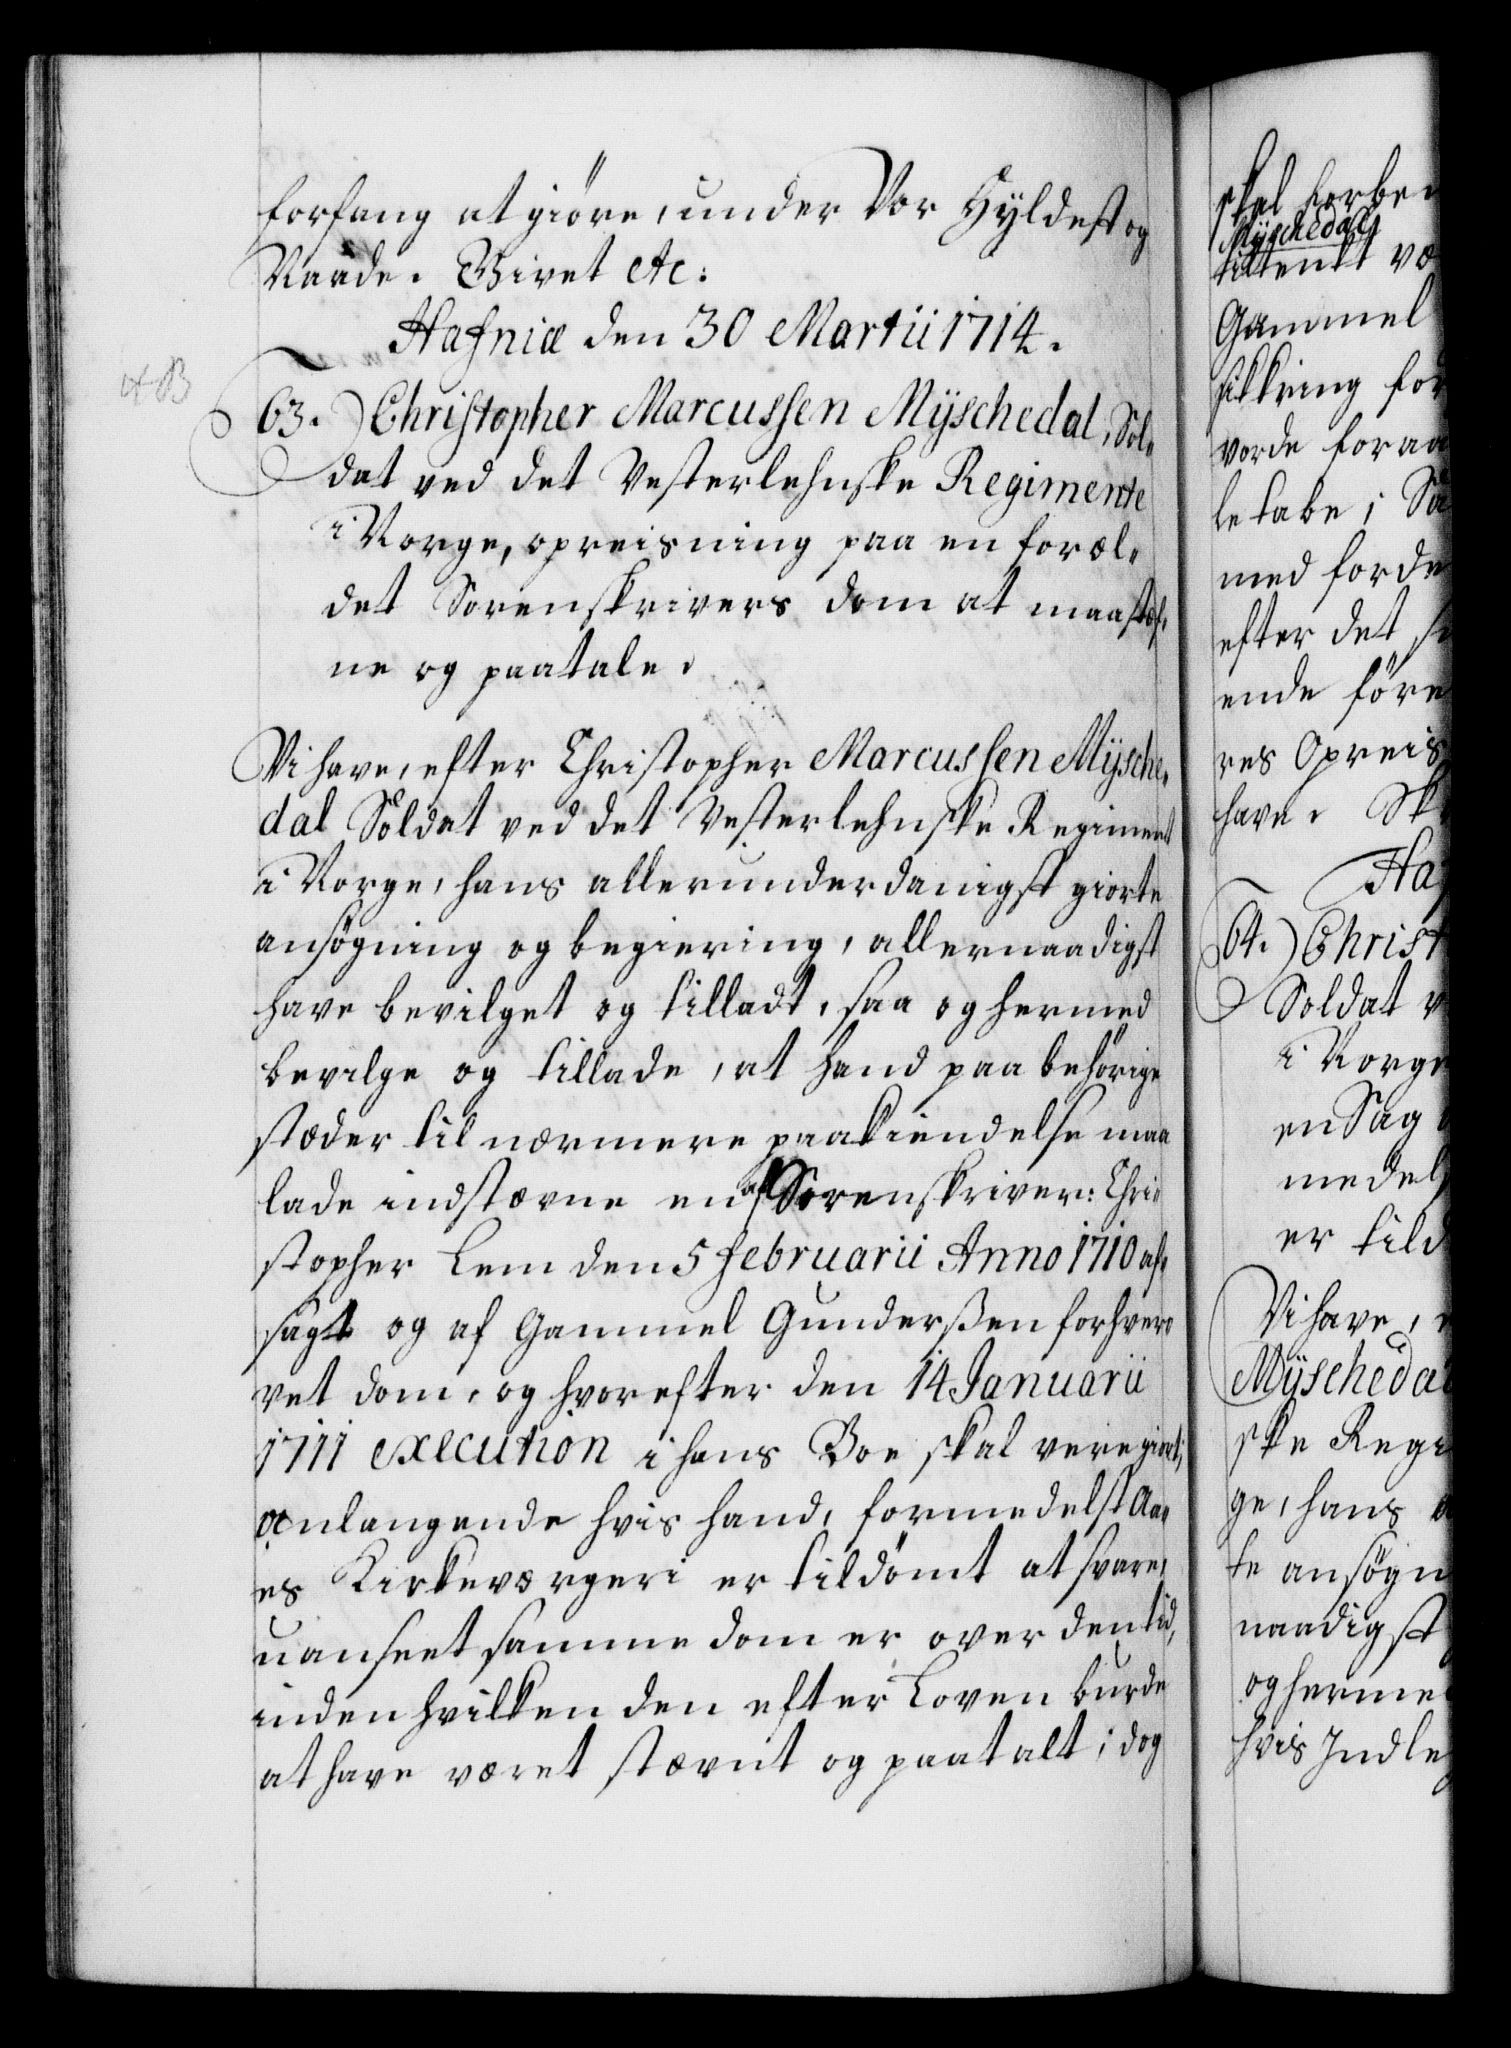 forfang at giöre, under Vor Hyldest og
Naade. Givet etc:
Hafniæ den 30 Martii 1714.
63.) Christopher Marcussen Mÿschedal, Sol-
dat ved det Vesterlehnske Regimente
i Norge, opreisning paa en foræl-
det Sorenskrivers dom at maa stæf-
ne og paatale.
Vi have, efter Christopher Marcussen Mÿsche-
dal Soldat ved det Vesterlehnske Regiment
i Norge, hans allerunderdanigst giorte
ansøgning og begiering, allernaadigst
have bevilget og tilladt, saa og hermed
bevilge og tillade, at hand paa behörige
stæder til nærmere paakiendelse maa
lade indstævne en af Sorenskriver: Chri-
stopher Lem den 5 februarii Anno 1710 af-
sagt og af Gammel Gunderßen forhver-
vet dom, og hvorefter den 14 Januarii
1711 execution i hans Boe skal være giort;
anlangende hvis hand, formedelst Aa-
es Kirkeværgeri er tildömt at svare,
uanseet samme dom er over den tid,
inden hvilken den efter Loven burde
at have været stævnt og paatalt; dog
skal
Mÿschedal
tiltenkt
Gammel
sikkring for
vorde
le tabe;
med
efter det
ende före
res Opreis
have.
64.) Christ
Soldat
i Norge
en Sag
medels
er tild
Vi have,
Mÿschedal
ske Regi
ge, hans
te ansögn
naadigst
og herme
hvis Indle